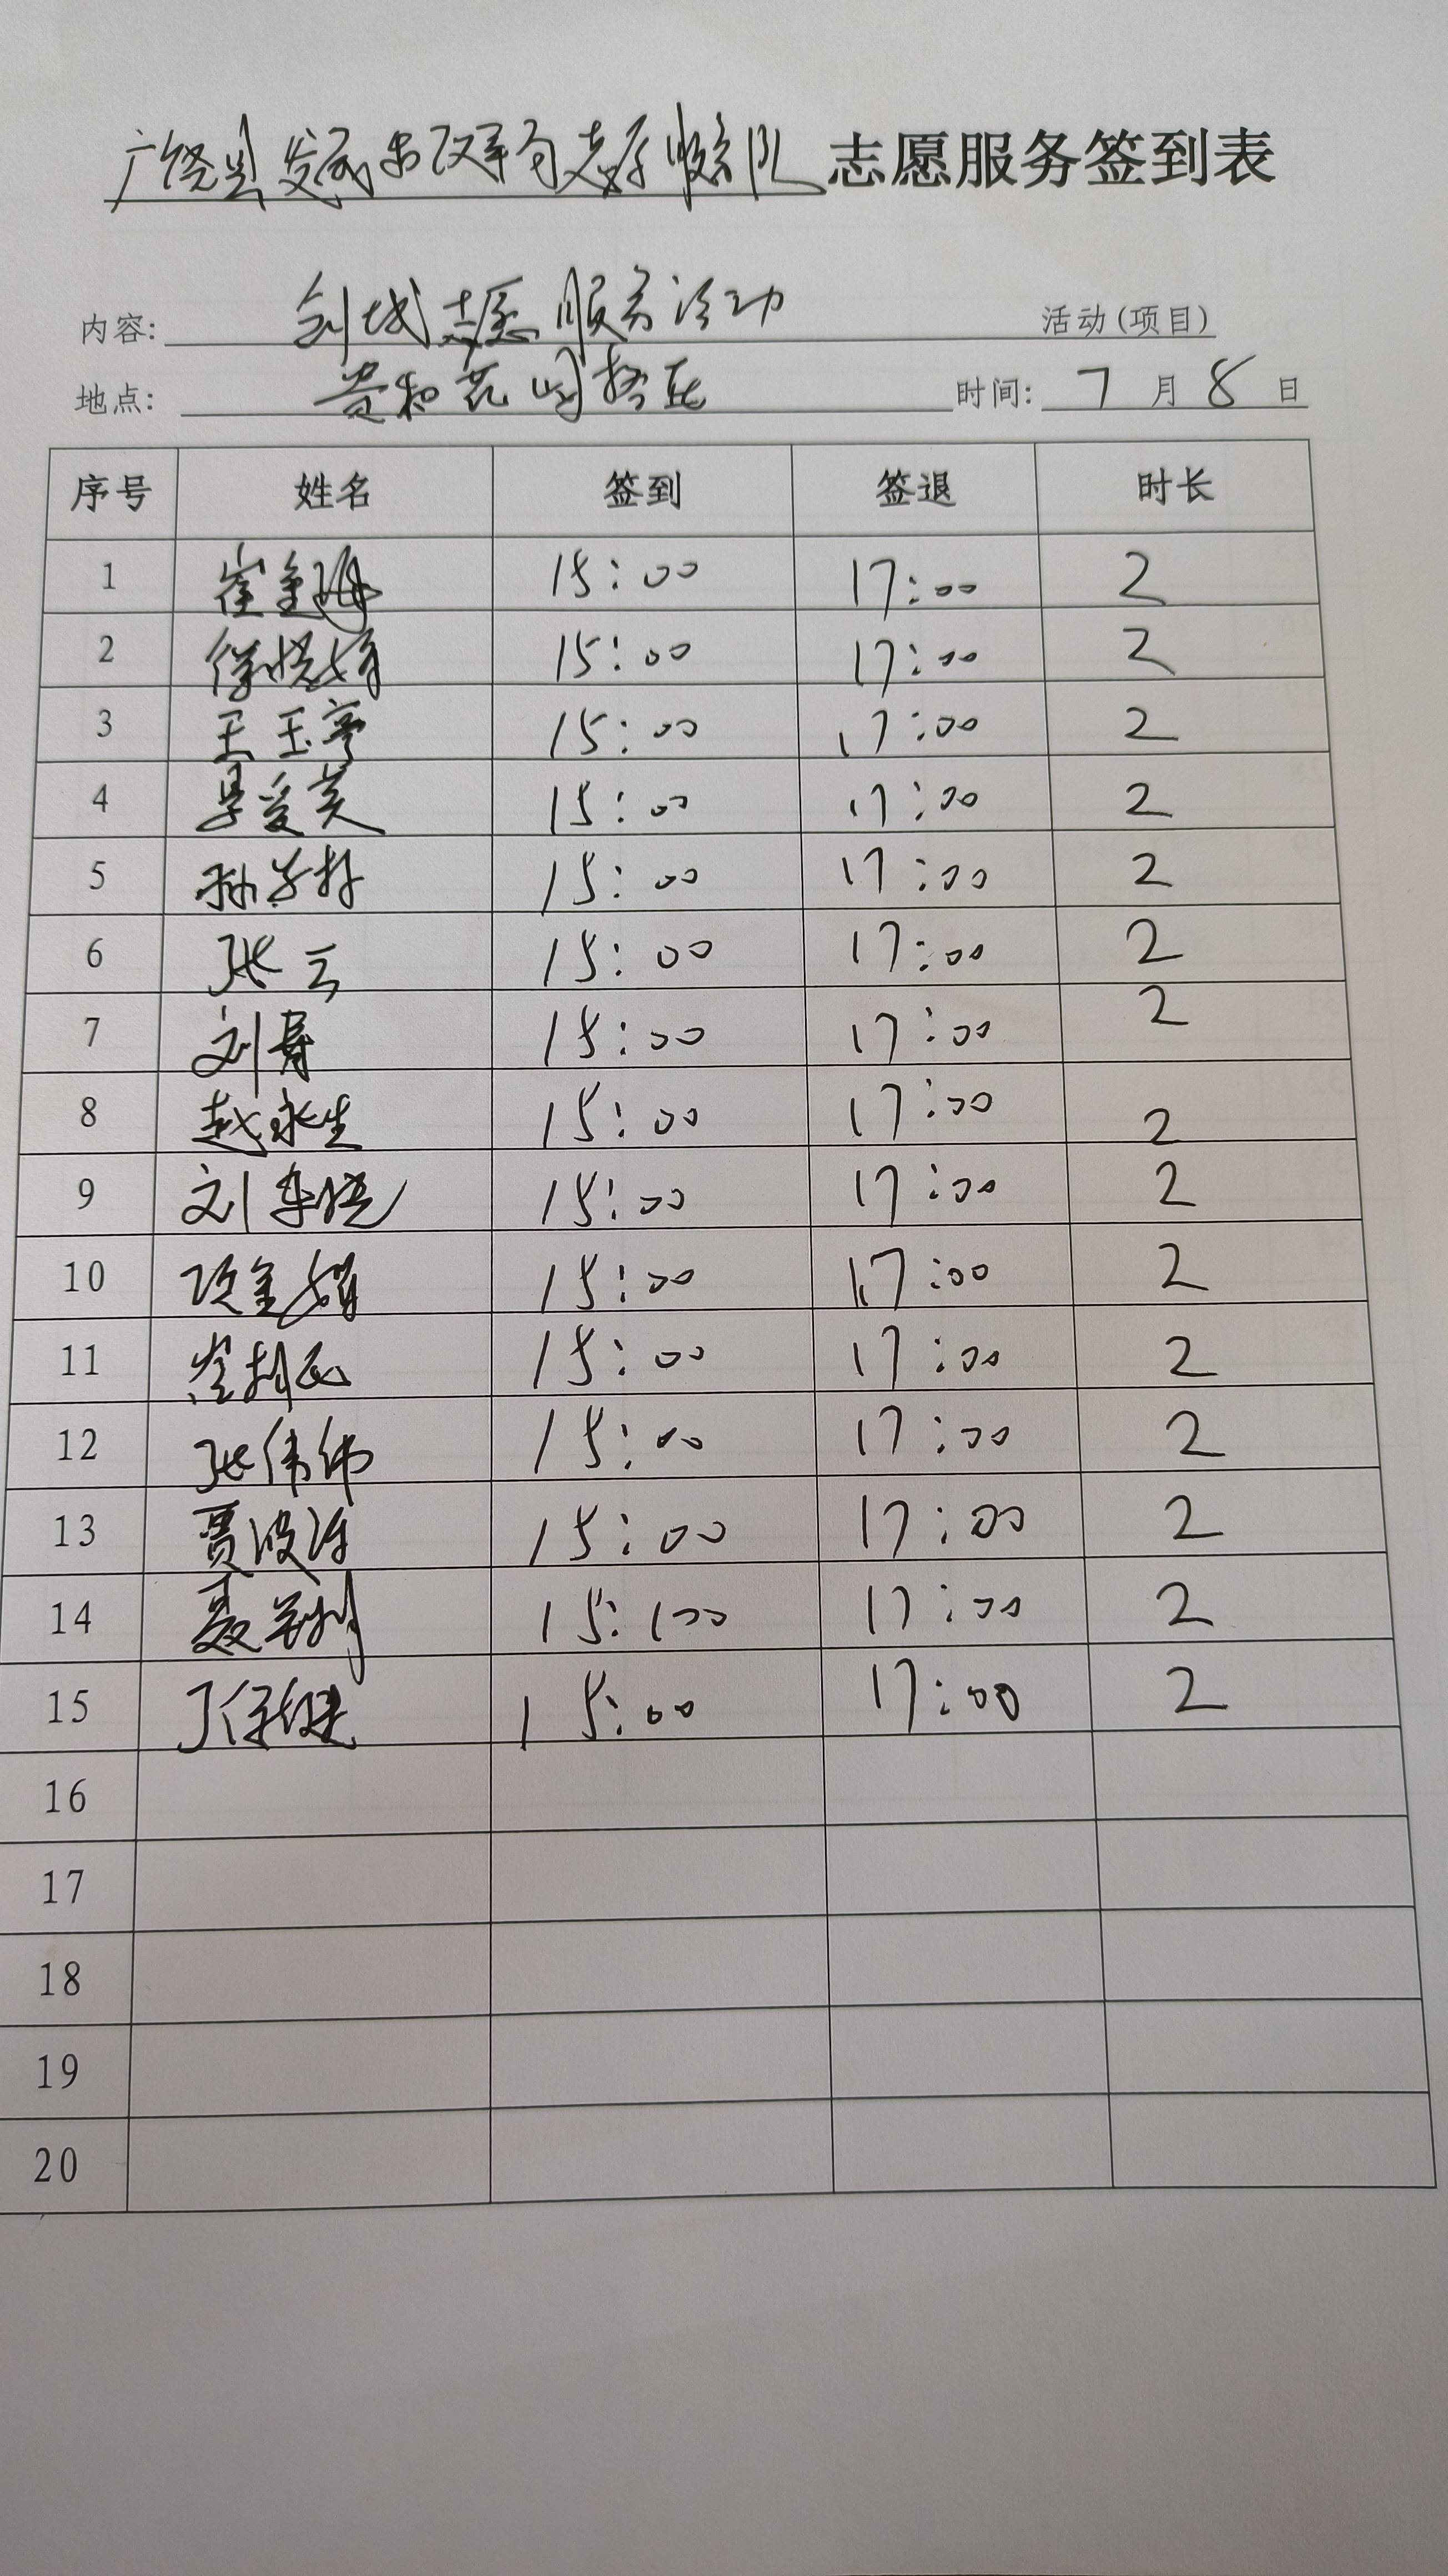 广饶县发展和改革局志愿服务队 志愿服务签到表
内容: 创城志愿服务活动 活动(项目)
地点: 贵和花园社区 时间: 7 月 8 日
序号 姓名 签到 签退 时长
1 崔金海 15:00 17:00 2
2 徐悦婷 15:00 17:00 2
3 王玉亭 15:00 17:00 2
4 爱英 15:00 17:00 2
5 孙 15:00 17:00 2
6 张云 15:00 17:00 2
7 刘 15:00 17:00 2
8 赵永生 15:00 17:00 2
9 刘 晓 15:00 17:00 2
10 项金娟 15:00 17:00 2
11 崔 15:00 17:00 2
12 张伟伟 15:00 17:00 2
13 贾波 15:00 17:00 2
14 聂 15:00 17:00 2
15 丁 15:00 17:00 2
16
17
18
19
20